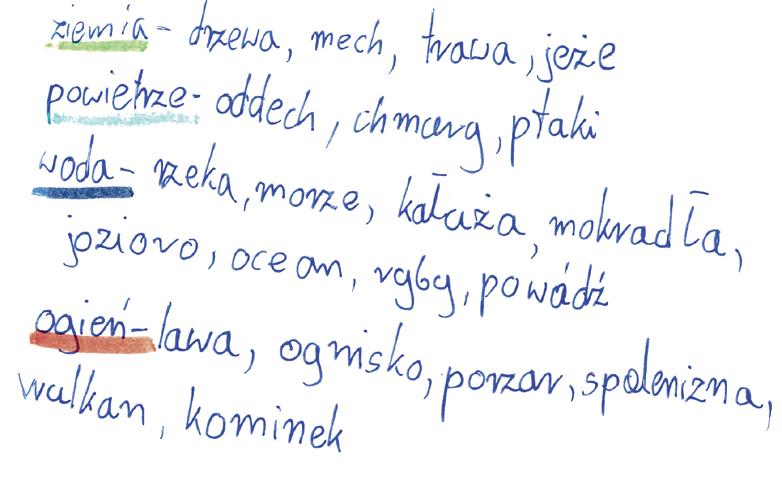 ziemia - drzewa, mech, trawa, jeże
powietrze - oddech, chmury, ptaki
woda - rzeka, morze, kałuża, mokradła,
joziovo, ocean, ryby, powádź
ogień - lawa, ognisko, porzar, spalenizna,
wulkan, kominek